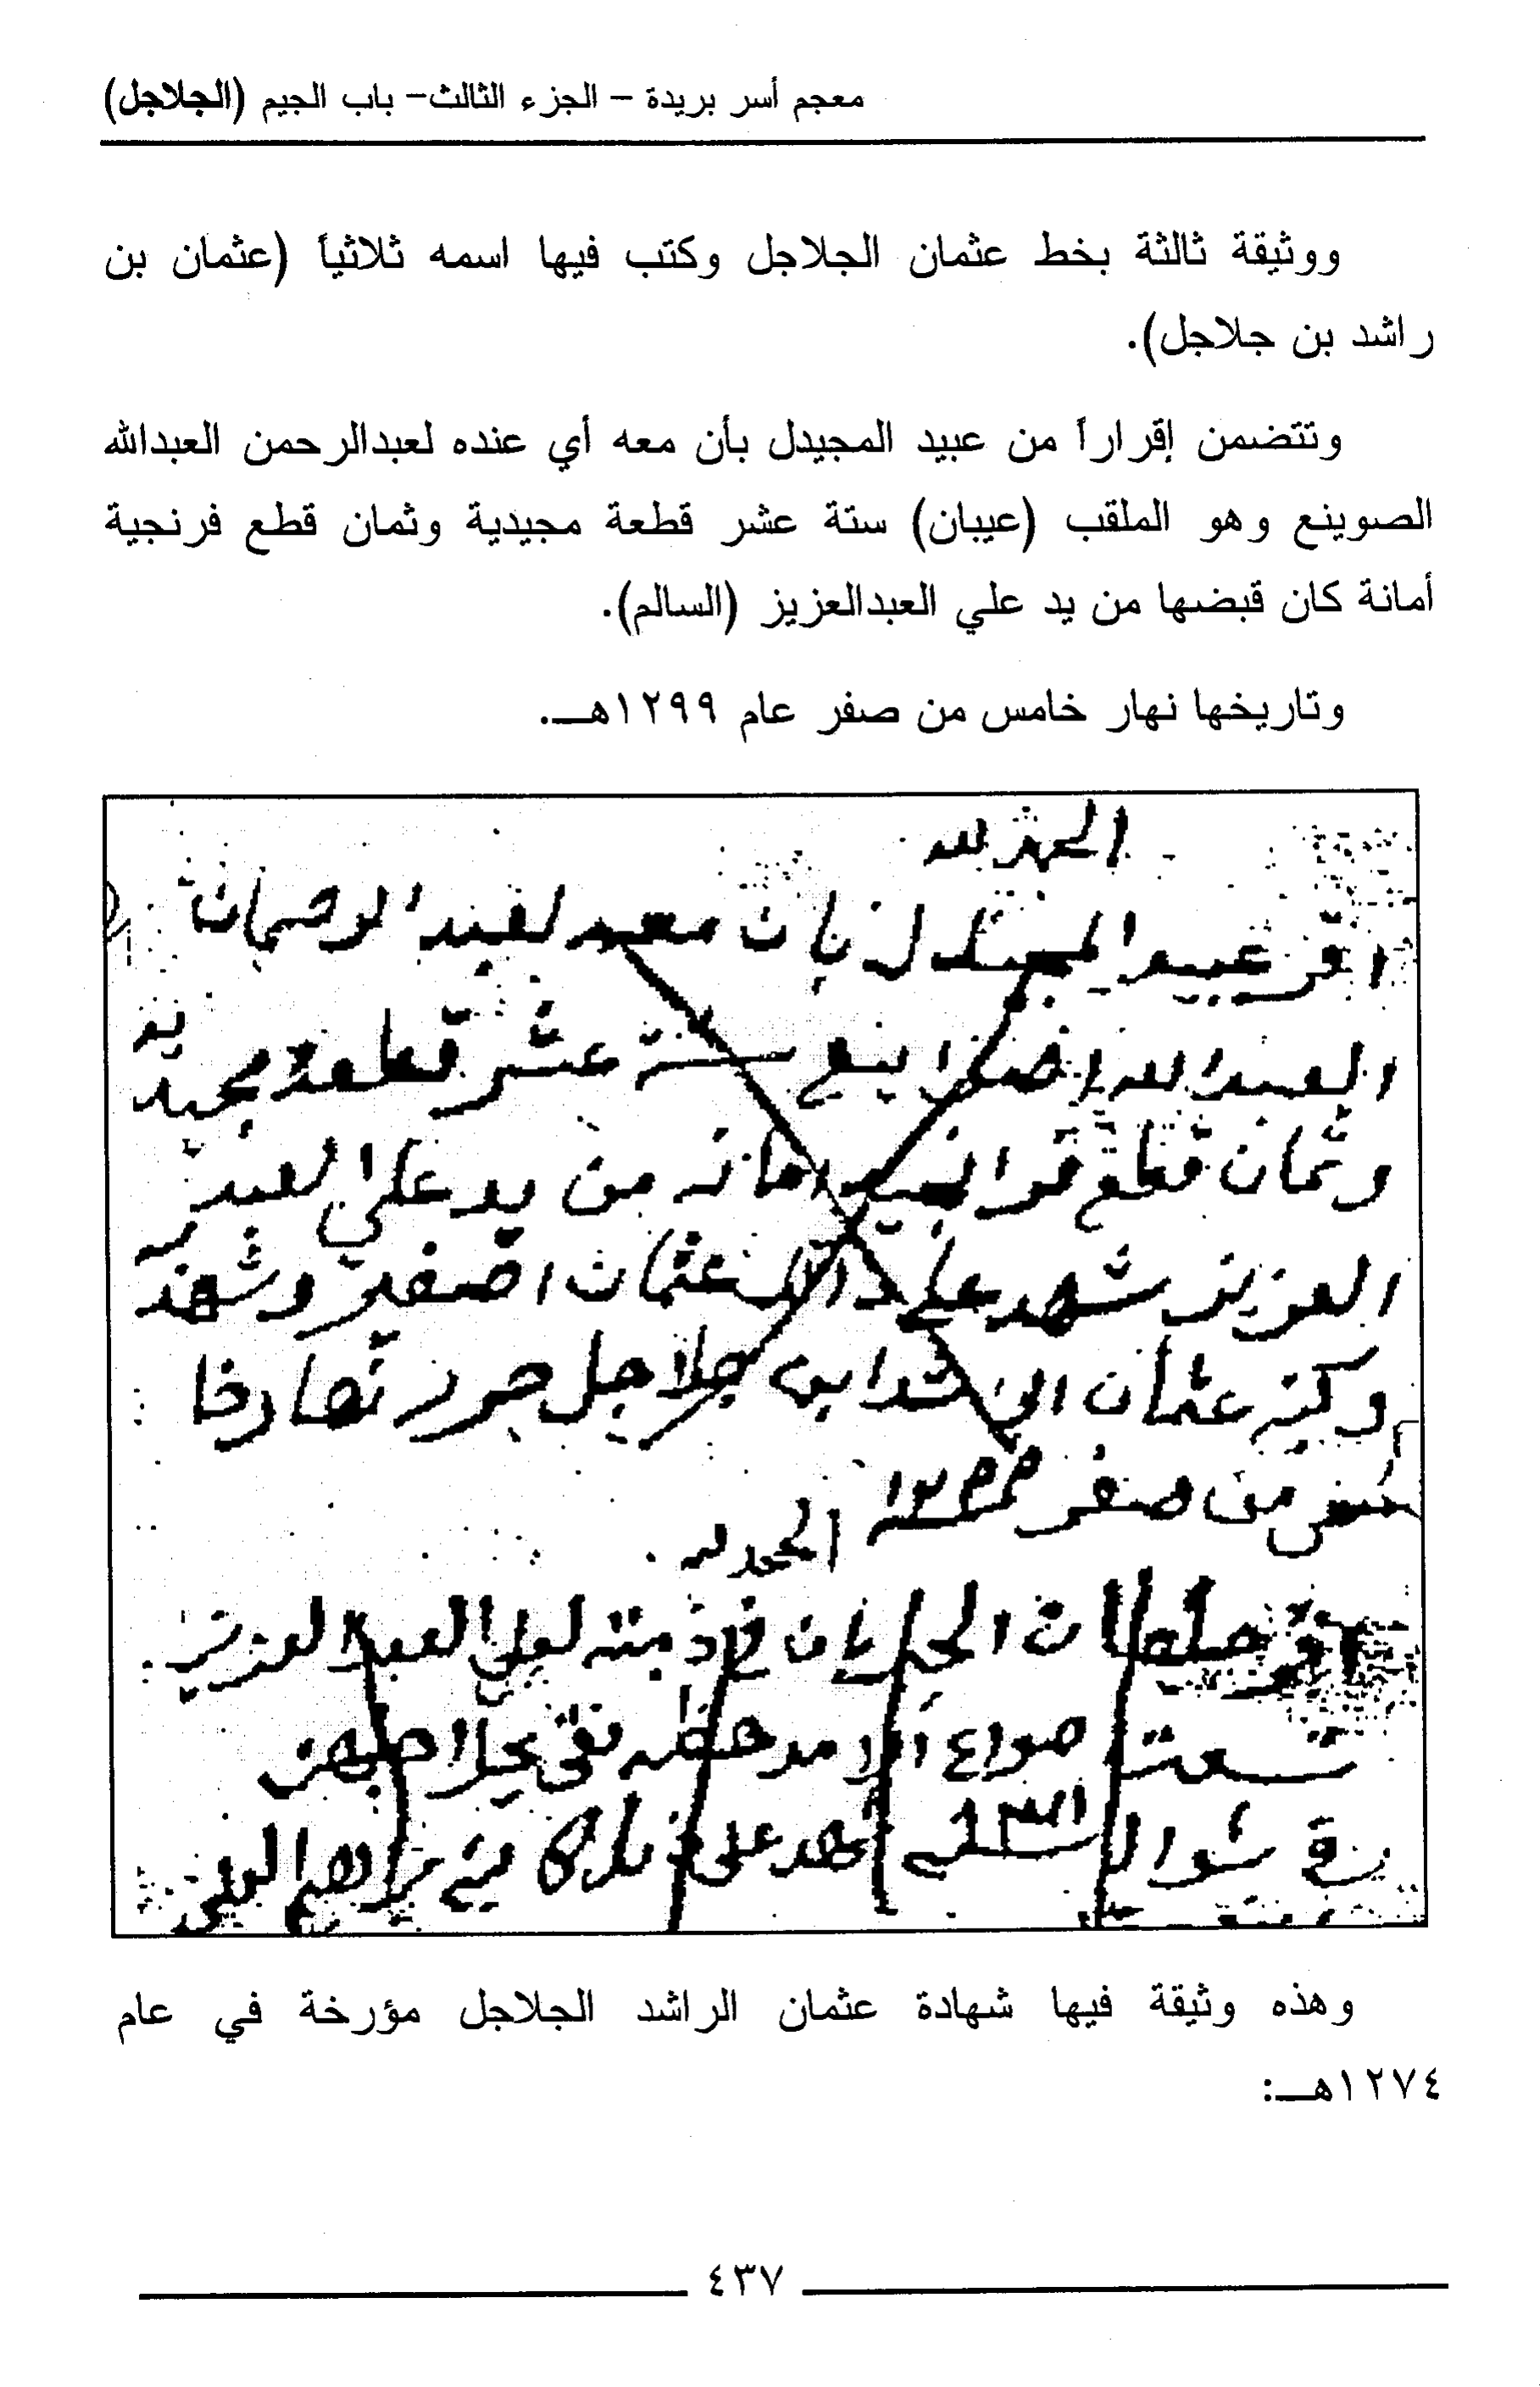 معجم أسر بريدة – الجزء الثالث– باب الجيم (الجلاجل)
ووثيقة ثالثة بخط عثمان الجلاجل وكتب فيها اسمه ثلاثياً (عثمان بن
راشد بن جلاجل).
وتتضمن إقراراً من عبيد المجيدل بأن معه أي عنده لعبدالرحمن العبدالله
الصوينع وهو الملقب (عيبان) ستة عشر قطعة مجيدية وثمان قطع فرنجية
أمانة كان قبضها من يد علي العبدالعزيز (السالم).
وتاريخها نهار خامس من صفر عام ١٢٩٩هـ.
الحمد لله
اقر عبيد المجيدل بان معه لعبد الرحمان
العبد الله ستة عشر قطعة مجيديه
وثمان قطع امانه من يد علي العبد
العزيز شهد علي ذالك عثمان وشهد
وكتبه عثمان ابن جلاجل حرر نهار
من صفر
الحمد لله
اقر بان في ذمته لعلي العبد العزيز
صواع
شوال شهد علي ذلك
وهذه وثيقة فيها شهادة عثمان الراشد الجلاجل مؤرخة في عام
١٢٧٤هـ:
٤٣٧